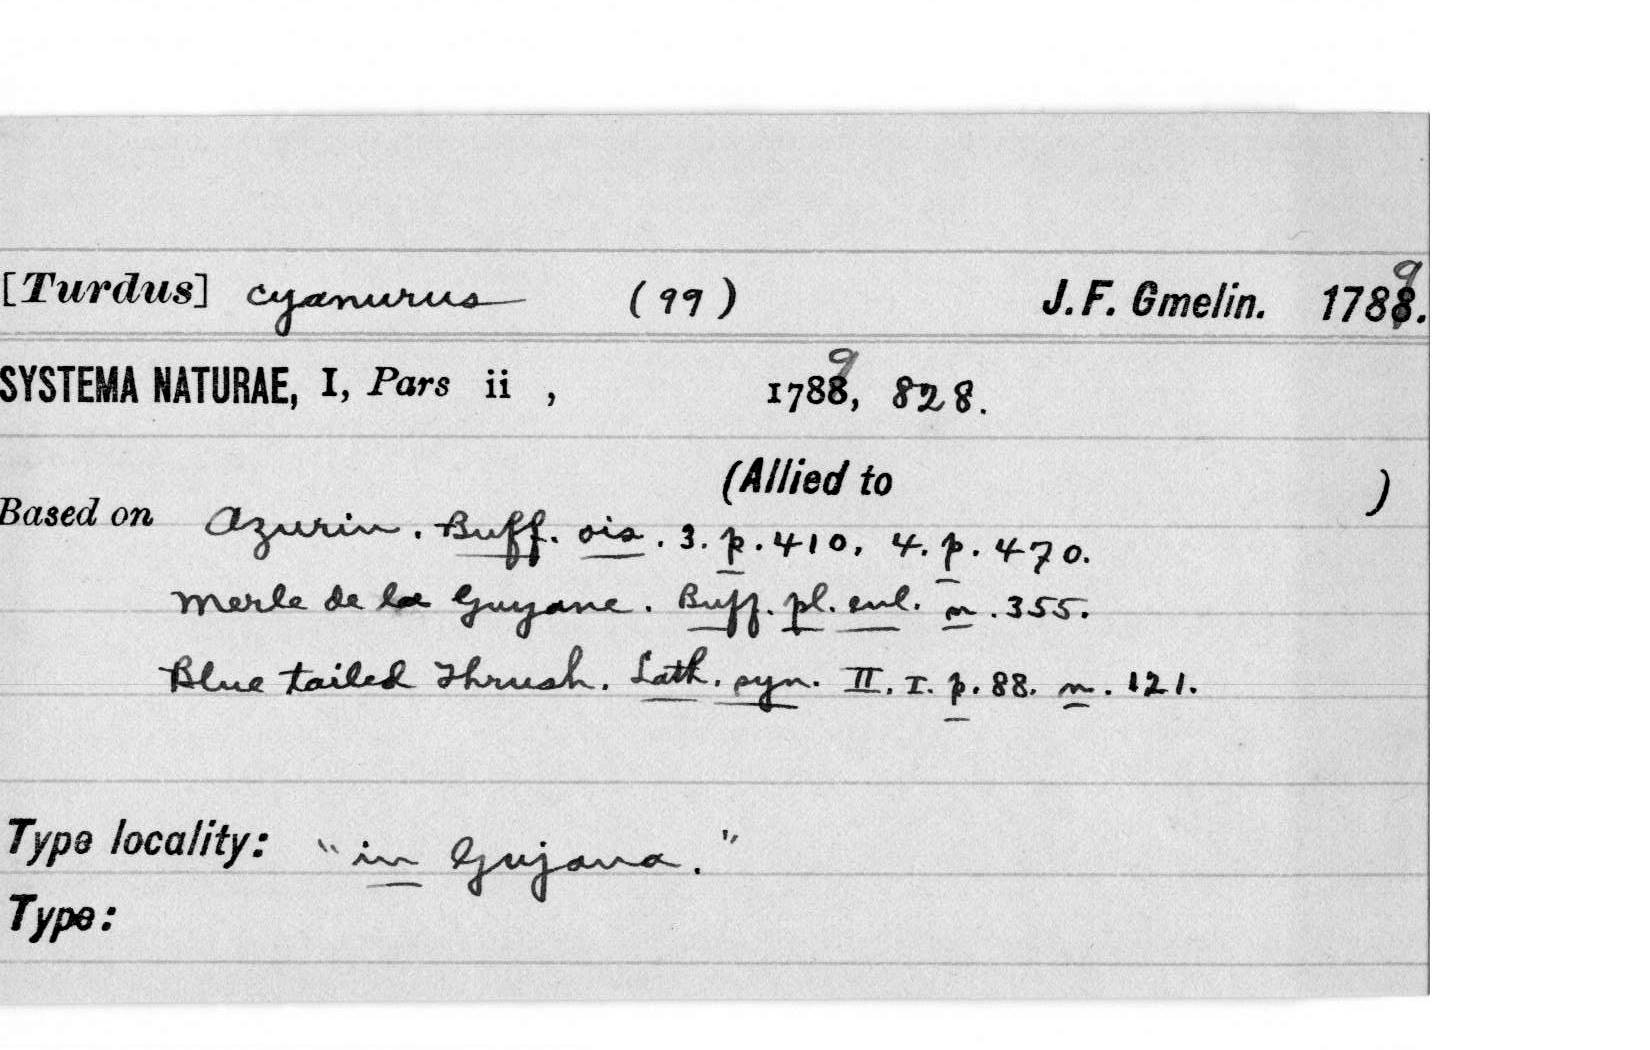 [Turdus] cyanurus (99) J. F. Gmelin. 1789.
SYSTEMA NATURAE, I, Pars ii , 1789, 828.
(Allied to )
Based on Azurin. Buff. ois. 3. p. 410, 4. p. 470.
Merle de la Guyane. Buff. pl. enl. n. 355.
Blue tailed Thrush. Lath. syn. II. I. p. 88. n. 121.
Type locality: "in Gujana."
Type: